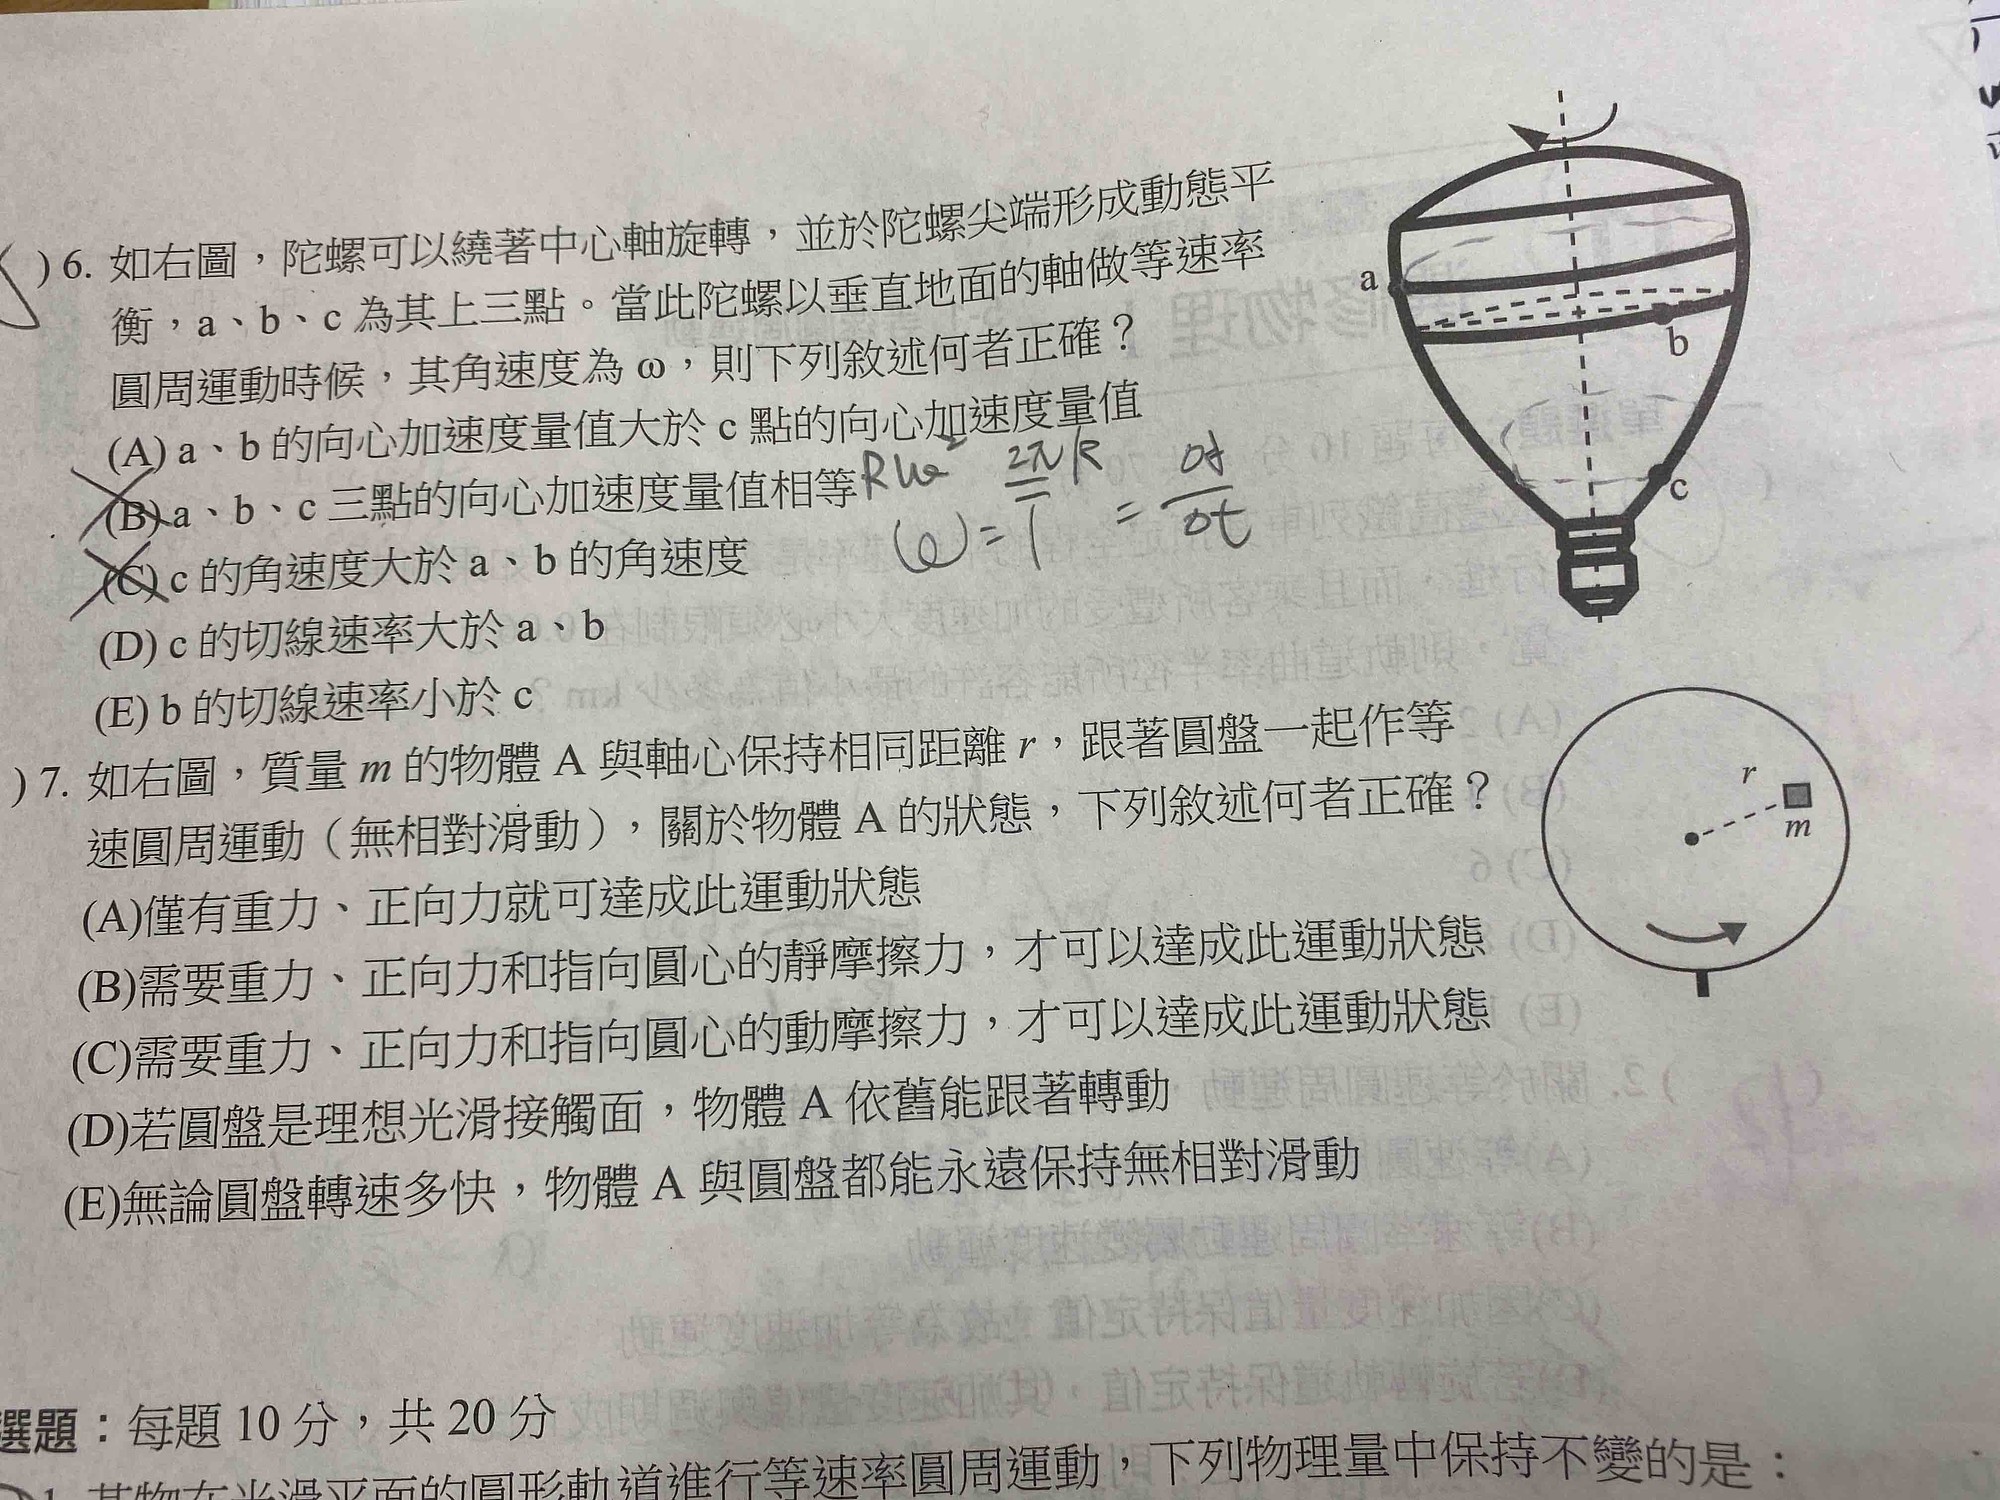 )6. 如右圖，陀螺可以繞著中心軸旋轉，並於陀螺尖端形成動態平
衡，a、b、c 為其上三點。當此陀螺以垂直地面的軸做等速率
圓周運動時候，其角速度為 ω，則下列敘述何者正確？
(A) a、b 的向心加速度量值大於 c 點的向心加速度量值
(B) a、b、c 三點的向心加速度量值相等
Rω²
2πR
ω = = Δd
Δt
(C) c 的角速度大於 a、b 的角速度
(D) c 的切線速率大於 a、b
(E) b 的切線速率小於 c
a
b
c
)7. 如右圖，質量 m 的物體 A 與軸心保持相同距離 r，跟著圓盤一起作等
速圓周運動（無相對滑動），關於物體 A 的狀態，下列敘述何者正確？
(A)僅有重力、正向力就可達成此運動狀態
(B)需要重力、正向力和指向圓心的靜摩擦力，才可以達成此運動狀態
(C)需要重力、正向力和指向圓心的動摩擦力，才可以達成此運動狀態
(D)若圓盤是理想光滑接觸面，物體 A 依舊能跟著轉動
(E)無論圓盤轉速多快，物體 A 與圓盤都能永遠保持無相對滑動
r
m
選題：每題 10 分，共 20 分
)1. 某物在光滑平面的圓形軌道進行等速率圓周運動，下列物理量中保持不變的是：